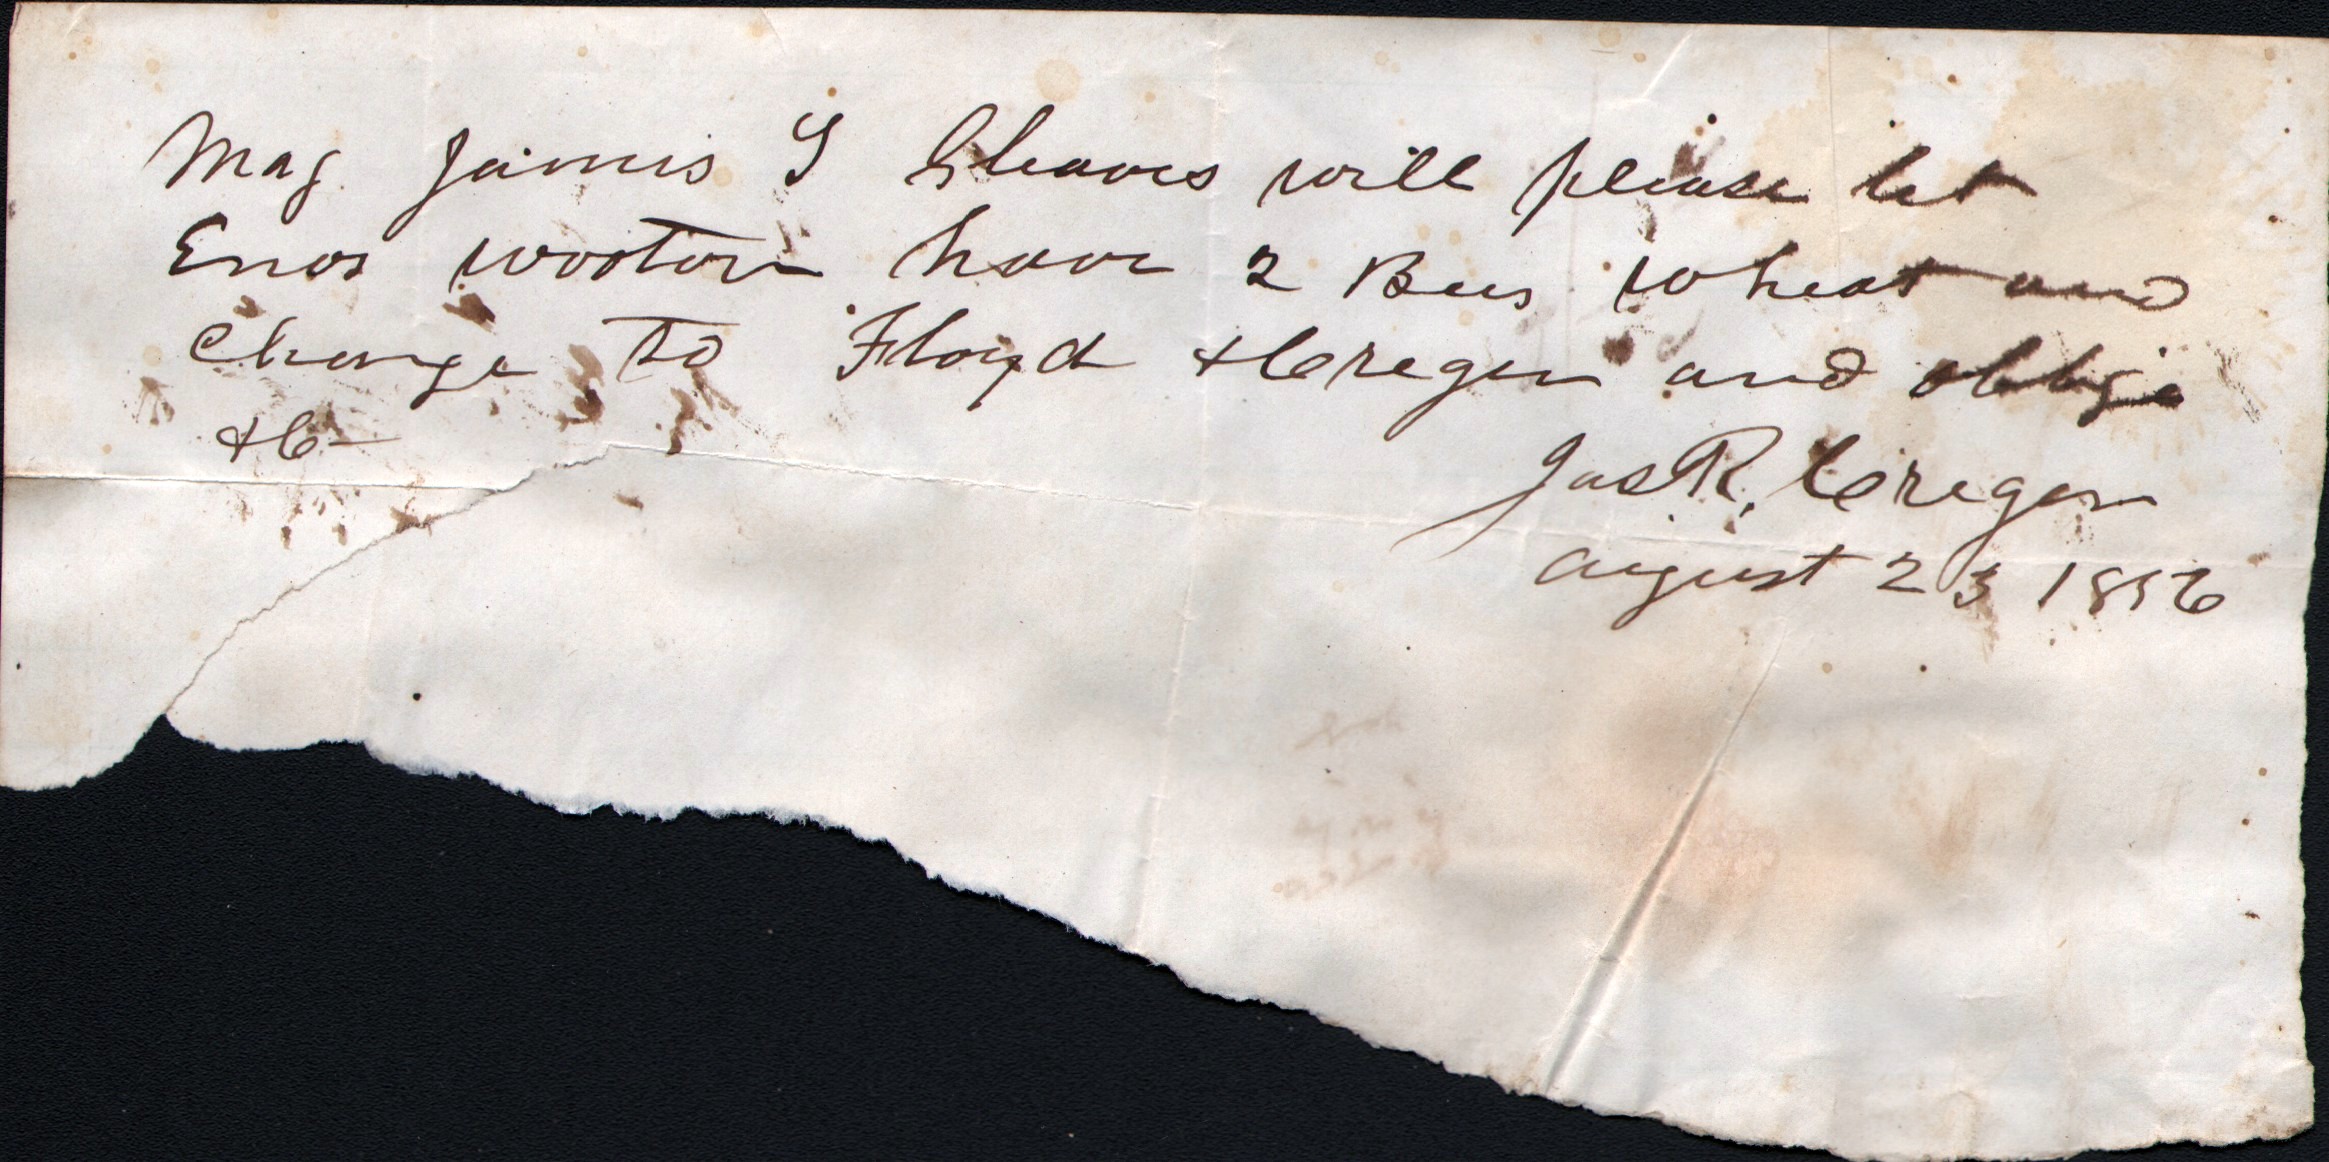 Maj James T Gleaves will please let
Enos wooton have 2 Bus wheat and
Charge to Floyd & Creger and oblige
&C
Jas R. Creger
august 23 1856